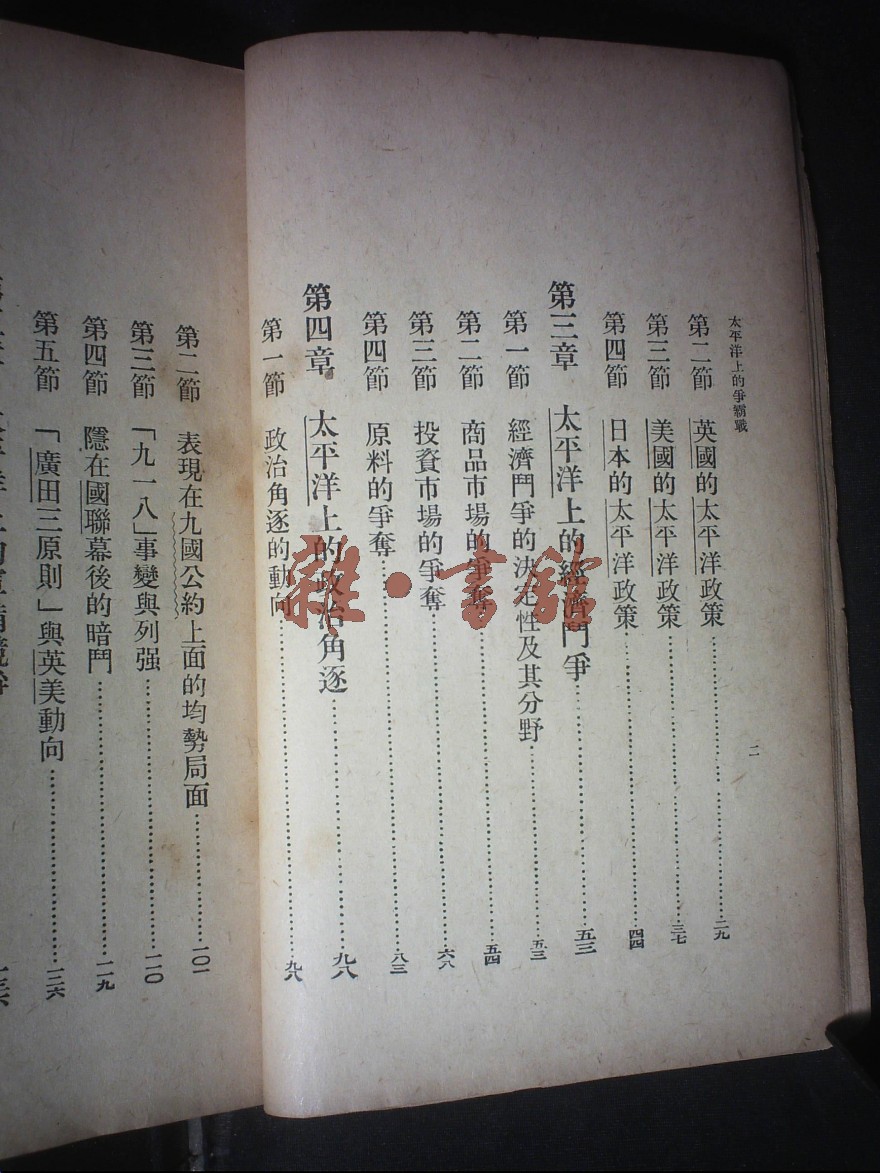 太平洋上的爭霸戰
二
第二節 英國的太平洋政策……二九
第三節 美國的太平洋政策……三七
第四節 日本的太平洋政策……四四
第三章 太平洋上的經濟鬥爭……五三
第一節 經濟鬥爭的決定性及其分野……五三
第二節 商品市場的爭奪……五四
第三節 投資市場的爭奪……六八
第四節 原料的爭奪……八三
第四章 太平洋上的政治角逐……九八
第一節 政治角逐的動向……九八
第二節 表現在九國公約上面的均勢局面……一〇一
第三節 「九一八」事變與列强……一一〇
第四節 隱在國聯幕後的暗鬥……一一九
第五節 「廣田三原則」與英美動向……一二六
雜·書館